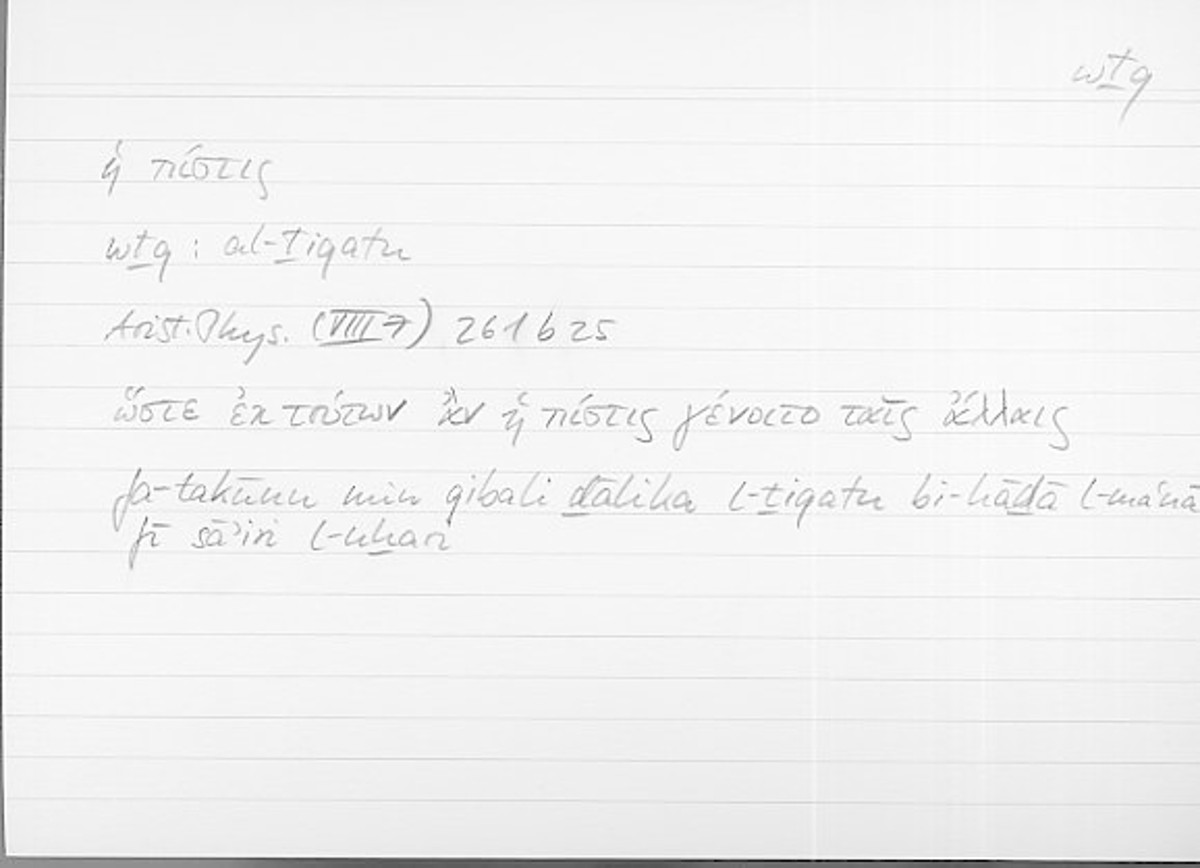 wṯq
ἡ πίστις
wṯq : al-ṯiqatu
Arist. Phys. (VIII 7) 261 b 25
ὥστε ἐκ τούτων ἂν ἡ πίστις γένοιτο ταῖς ἄλλαις
fa-takūnu min qibali ḏālika l-ṯiqatu bi-hāḏā l-maʿnā
fī sāʾiri l-uḫari